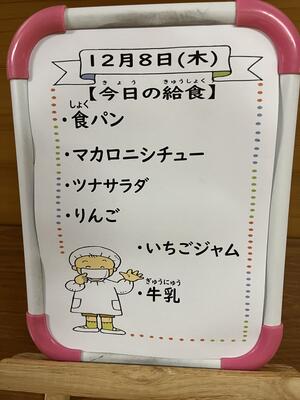 12月8日(木)
きょう きゅうしょく
【今日の給食】
しょく
・食パン
・マカロニシチュー
・ツナサラダ
・りんご
・いちごジャム
ぎゅうにゅう
・牛乳